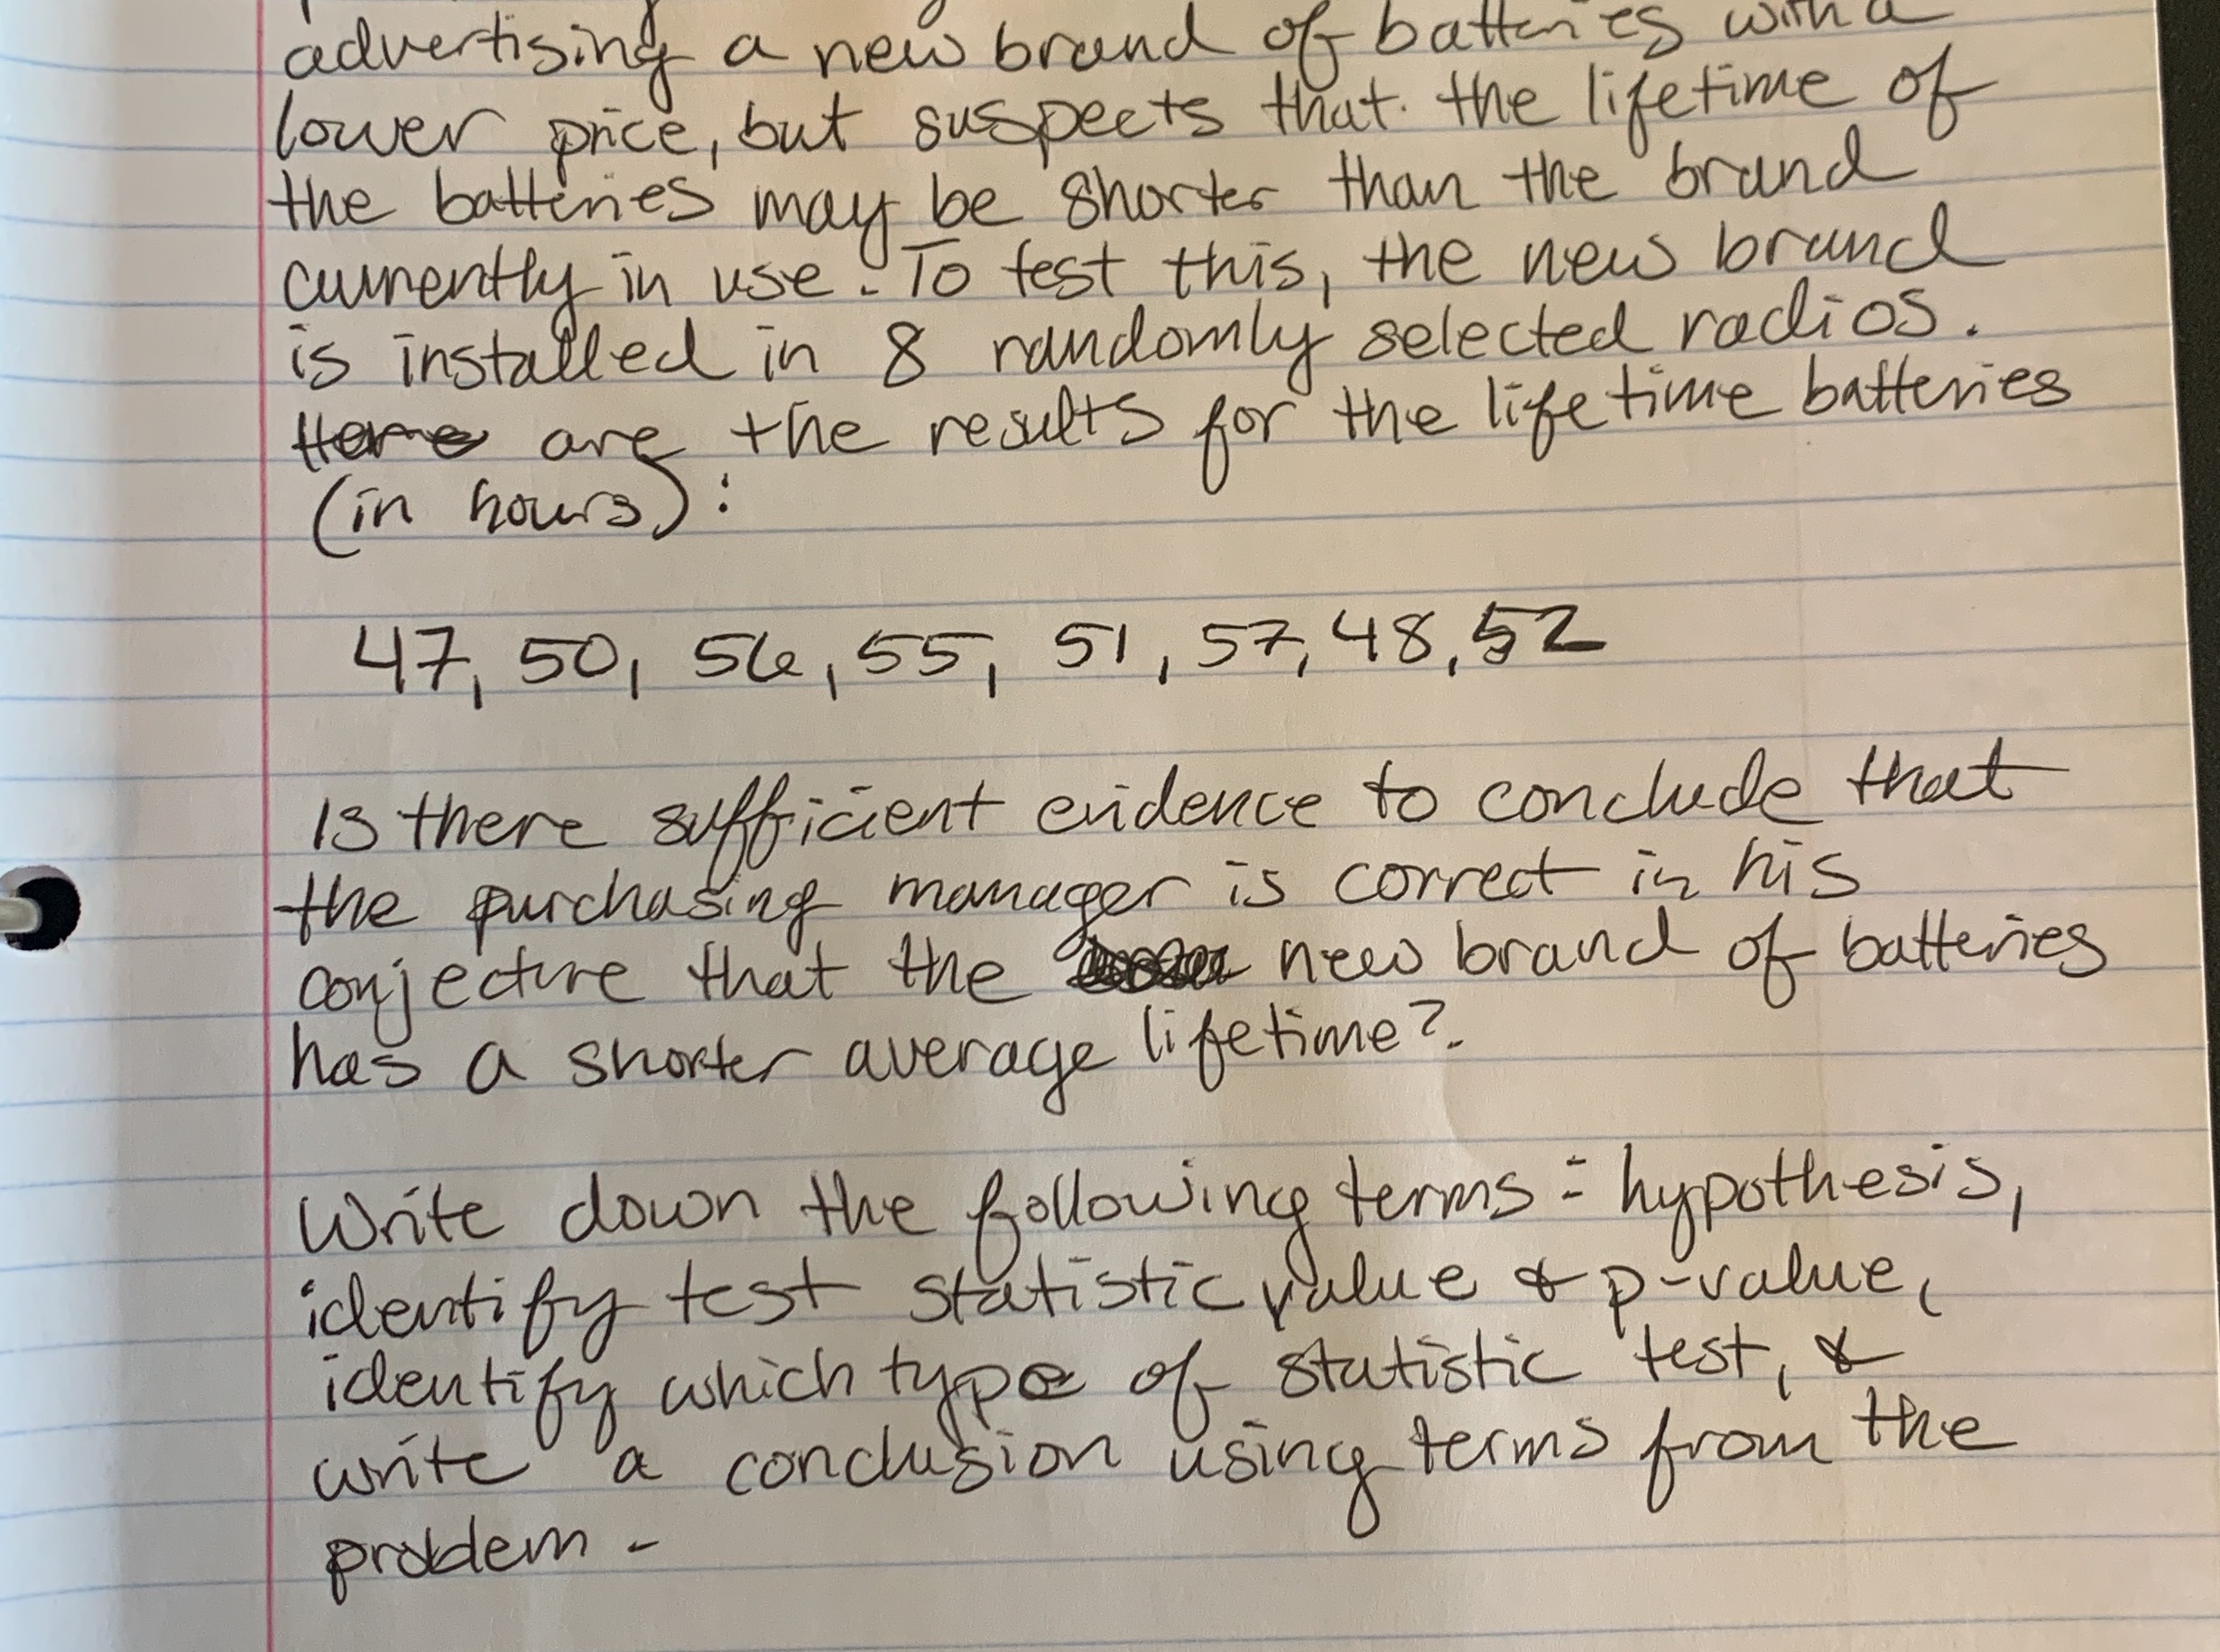 advertising a new brand of batteries with a
lower price, but suspects that the lifetime of
the batteries may be shorter than the brand
currently in use. To test this, the new brand
is installed in 8 randomly selected radios.
Here are the results for the lifetime batteries
(in hours):
47, 50, 56, 55, 51, 57, 48, 52
Is there sufficient evidence to conclude that
the purchasing manager is correct in his
conjecture that the new brand of batteries
has a shorter average lifetime?
Write down the following terms: hypothesis,
identify test statistic value & p-value,
identify which type of statistic test, &
write a conclusion using terms from the
problem.